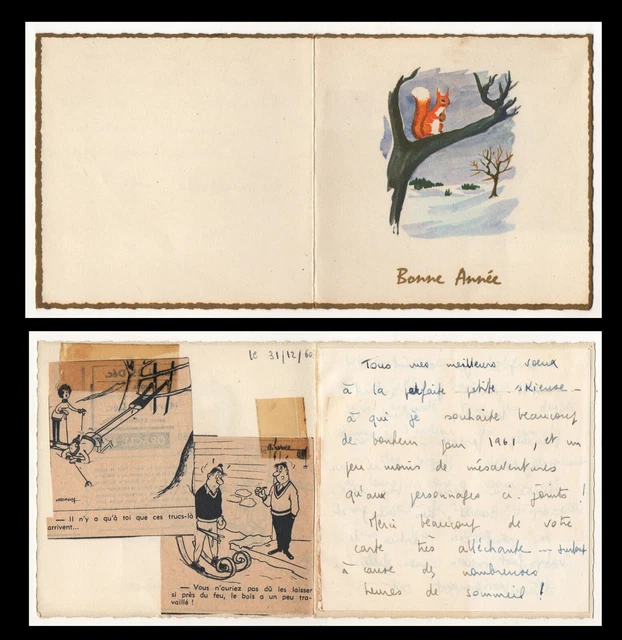 Bonne Année
le 31/12/60
— Il n'y a qu'à toi que ces trucs-là
arrivent...
— Vous n'auriez pas dû les laisser
si près du feu, le bois a un peu tra-
vaillé !
Tous mes meilleurs voeux
à la parfaite petite skieuse -
à qui je souhaite beaucoup
de bonheur pour 1961, et un
peu moins de mésaventures
qu'aux personnages ci-joints !
Merci beaucoup de votre
carte très alléchante -- surtout
à cause des nombreuses
heures de sommeil !